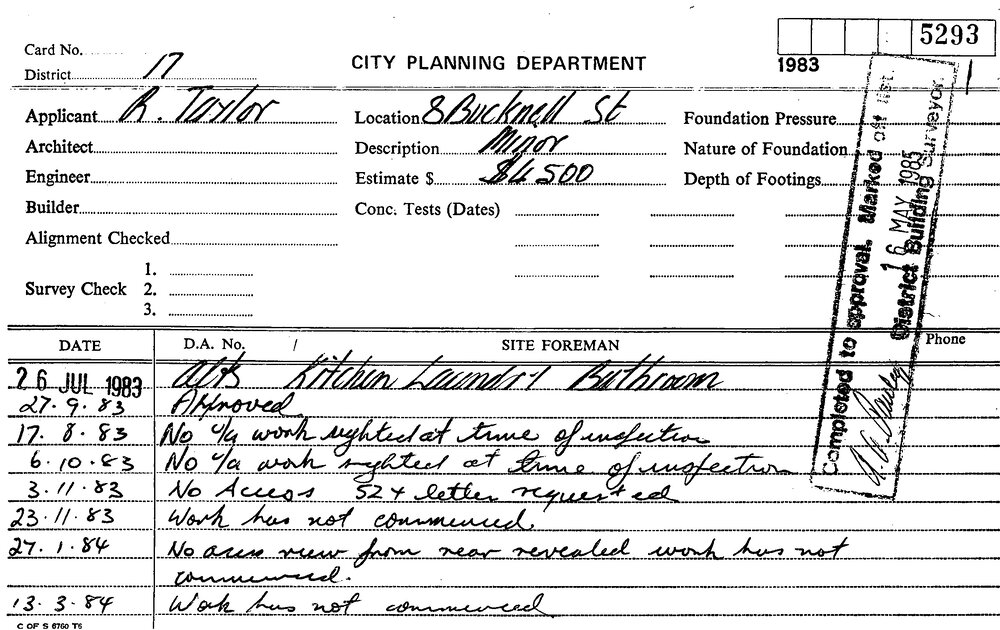 5293
Card No.
CITY PLANNING DEPARTMENT
1983
District 17
Applicant R. Taylor
Location 8 Bucknell St
Foundation Pressure
Architect
Description Minor
Nature of Foundation
Engineer
Estimate $ $4500
Depth of Footings
Builder
Conc. Tests (Dates)
Alignment Checked
1.
Survey Check 2.
3.
Completed to approval. Marked off list.
16 MAY 1985
District Building Surveyor
DATE D.A. No. / SITE FOREMAN Phone
26 JUL 1983 alts Kitchen Laundry Bathroom
27.9.83 Approved
17.8.83 No u/a work sighted at time of inspection
6.10.83 No u/a work sighted at time of inspection
3.11.83 No Access 524 letter requested
23.11.83 Work has not commenced.
27.1.84 No access view from rear revealed work has not
commenced.
13.3.84 Work has not commenced
C OF S 6760 T6